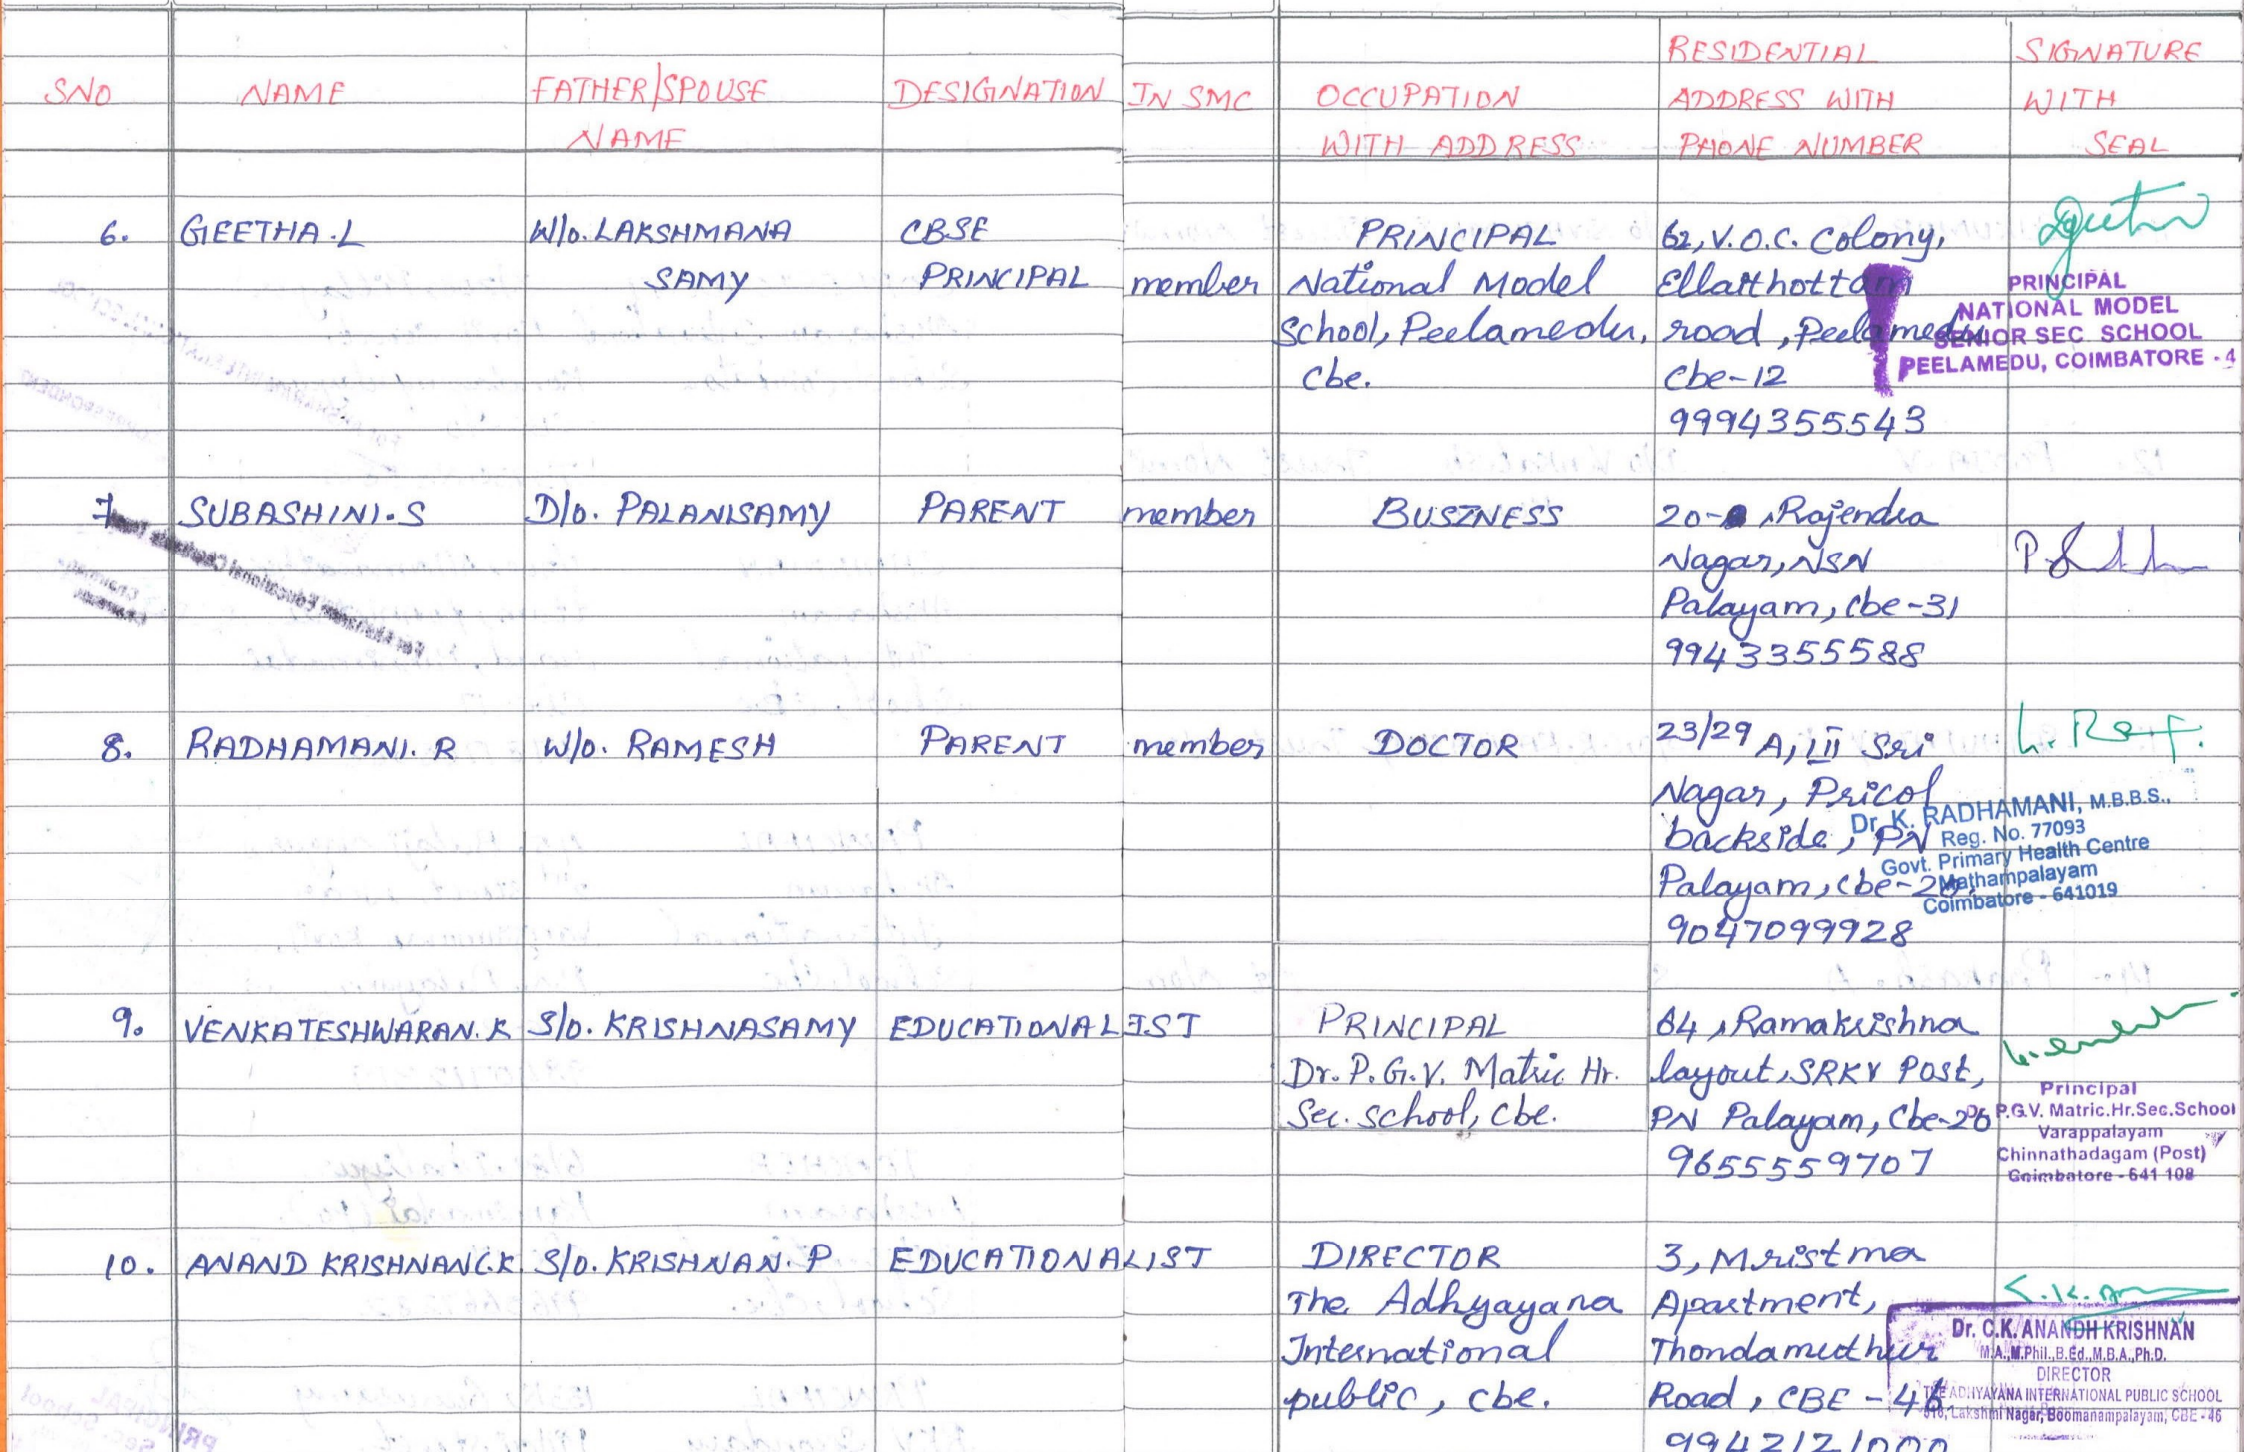 SNO NAME FATHER/SPOUSE NAME DESIGNATION IN SMC OCCUPATION WITH ADDRESS RESIDENTIAL ADDRESS WITH PHONE NUMBER SIGNATURE WITH SEAL
6. GEETHA.L W/o. LAKSHMANA CBSE PRINCIPAL 62, V.O.C. Colony,
SAMY PRINCIPAL member National Model Ellaithottam
School, Peelamedu, road, Peelamedu
Cbe. Cbe-12
9994355543
PRINCIPAL
NATIONAL MODEL
SENIOR SEC. SCHOOL
PEELAMEDU, COIMBATORE - 4
7. SUBASHINI.S D/o. PALANISAMY PARENT member BUSINESS 20- , Rajendra
Nagar, NSN
Palayam, Cbe-31
9943355588
8. RADHAMANI. R W/o. RAMESH PARENT member DOCTOR 23/29 A, III Sri
Nagar, Pricol
backside, PN
Palayam, Cbe-20.
9047099928
Dr. K. RADHAMANI, M.B.B.S.,
Reg. No. 77093
Govt. Primary Health Centre
Mathampalayam
Coimbatore - 641019
9. VENKATESHWARAN.K S/o. KRISHNASAMY EDUCATIONALIST PRINCIPAL 64, Ramakrishna
Dr. P.G.V. Matric Hr. layout, SRKV Post,
Sec. School, Cbe. PN Palayam, Cbe-20
9655559707
Principal
Dr. P.G.V. Matric.Hr.Sec.School
Varappalayam
Chinnathadagam (Post)
Coimbatore - 641 108
10. ANAND KRISHNAN.C.K. S/o. KRISHNAN. P EDUCATIONALIST DIRECTOR 3, Mristma
The Adhyayana Apartment,
International Thondamuthur
public, Cbe. Road, CBE - 46
9942121000
Dr. C.K. ANANDH KRISHNAN
M.A.,M.Phil.,B.Ed.,M.B.A.,Ph.D.
DIRECTOR
THE ADHYAYANA INTERNATIONAL PUBLIC SCHOOL
Lakshmi Nagar, Boomanampalayam, CBE - 46